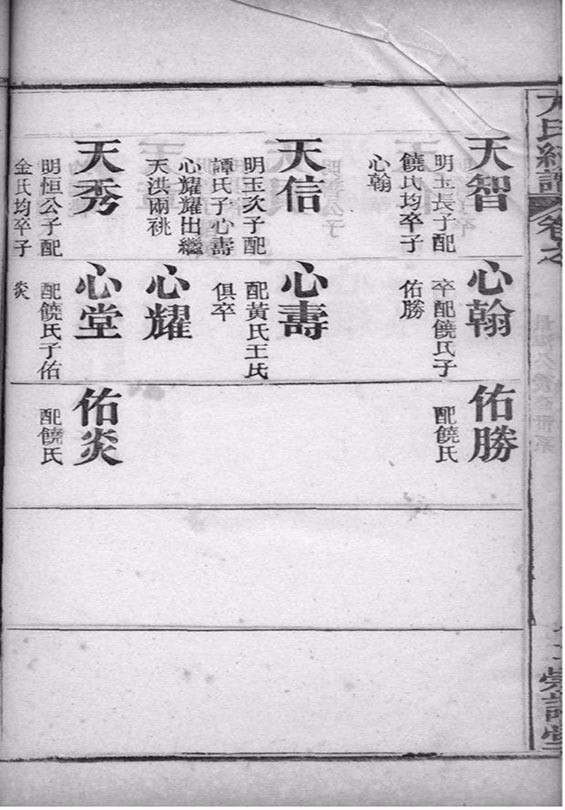 天智
明玉長子配
饒氏均卒子
心翰
天信
明玉次子配
譚氏子心壽
心耀耀出繼
天洪兩祧
天秀
明恒公子配
金氏均卒子
心翰
卒配饒氏子
佑勝
心壽
配黃氏王氏
俱卒
心耀
心堂
配饒氏子佑
炎
佑勝
配饒氏
佑炎
配饒氏
氏經譜
卷之